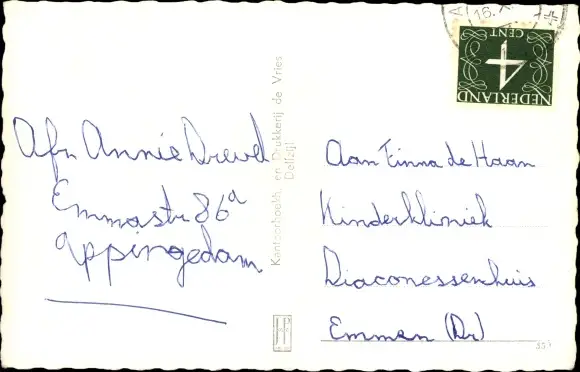 Afz. Annie Drewel
Emmastr. 86a
Appingedam
Kantoorboekh. en Drukkerij de Vries
Delfzijl
16. X
4
CENT
NEDERLAND
Aan Tinna de Haan
Kinderkliniek
Diaconessenhuis
Emmen (Dr)